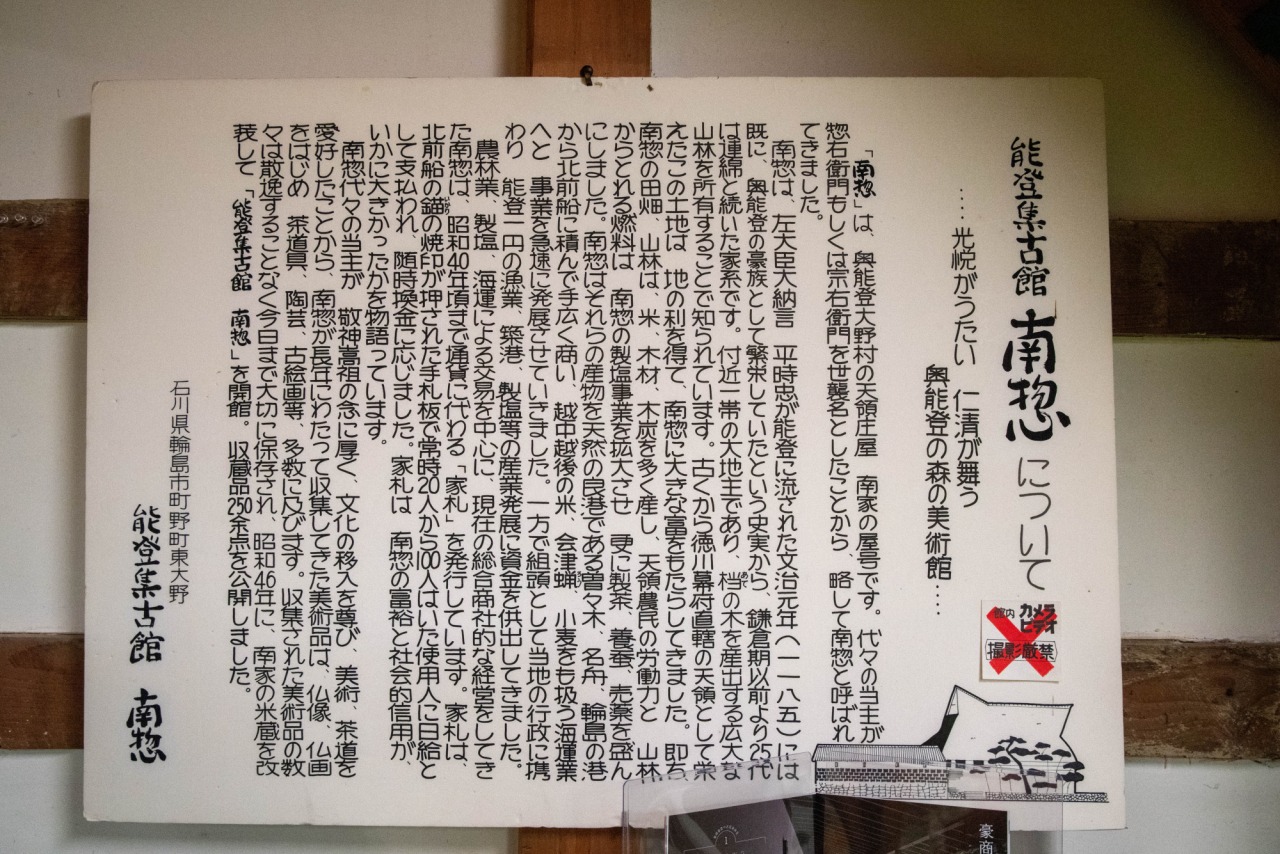 能登集古館 南惣 について
‥‥光悦がうたい 仁清が舞う
奥能登の森の美術館‥‥
館内 カメラ ビデオ
撮影厳禁
「南惣」は、奥能登大野村の天領庄屋 南家の屋号です。代々の当主が
惣右衛門もしくは宗右衛門を世襲名としたことから、略して南惣と呼ばれ
てきました。
南惣は、左大臣大納言 平時忠が能登に流された文治元年(一一八五)には
既に、奥能登の豪族として繁栄していたという史実から、鎌倉期以前より25代
は連綿と続いた家系です。付近一帯の大地主であり、档の木を産出する広大な
山林を所有することで知られています。古くから徳川幕府直轄の天領として栄
えたこの土地は、地の利を得て、南惣に大きな富をもたらしてきました。即ち
南惣の田畑、山林は、米、木材、木炭を多く産し、天領農民の労働力と 山林
からとれる燃料は、南惣の製塩事業を拡大させ 更に製茶、養蚕、売薬を盛ん
にしました。南惣はそれらの産物を天然の良港である曽々木、名舟、輪島の港
から北前船に積んで手広く商い、越中越後の米、会津蝋、小麦をも扱う海運業
へと 事業を急速に発展させていきました。一方で組頭として当地の行政に携
わり 能登一円の漁業、築港、製塩等の産業発展に資金を供出してきました。
農林業、製塩、海運による交易を中心に、現在の総合商社的な経営をしてき
た南惣は、昭和40年頃まで通貨に代わる「家札」を発行しています。家札は、
北前船の錨の焼印が押された手札板で常時20人から100人はいた使用人に日給と
して支払われ、随時換金に応じました。家札は 南惣の富裕と社会的信用が、
いかに大きかったかを物語っています。
南惣代々の当主が 敬神崇祖の念に厚く、文化の移入を尊び、美術、茶道を
愛好したことから、南惣が長年にわたって収集してきた美術品は、仏像、仏画
をはじめ 茶道具、陶芸、古絵画等、多数に及びます。収集された美術品の数
々は散逸することなく今日まで大切に保存され、昭和46年に、南家の米蔵を改
装して「能登集古館 南惣」を開館。収蔵品250余点を公開しました。
石川県輪島市町野町東大野
能登集古館 南惣
豪商